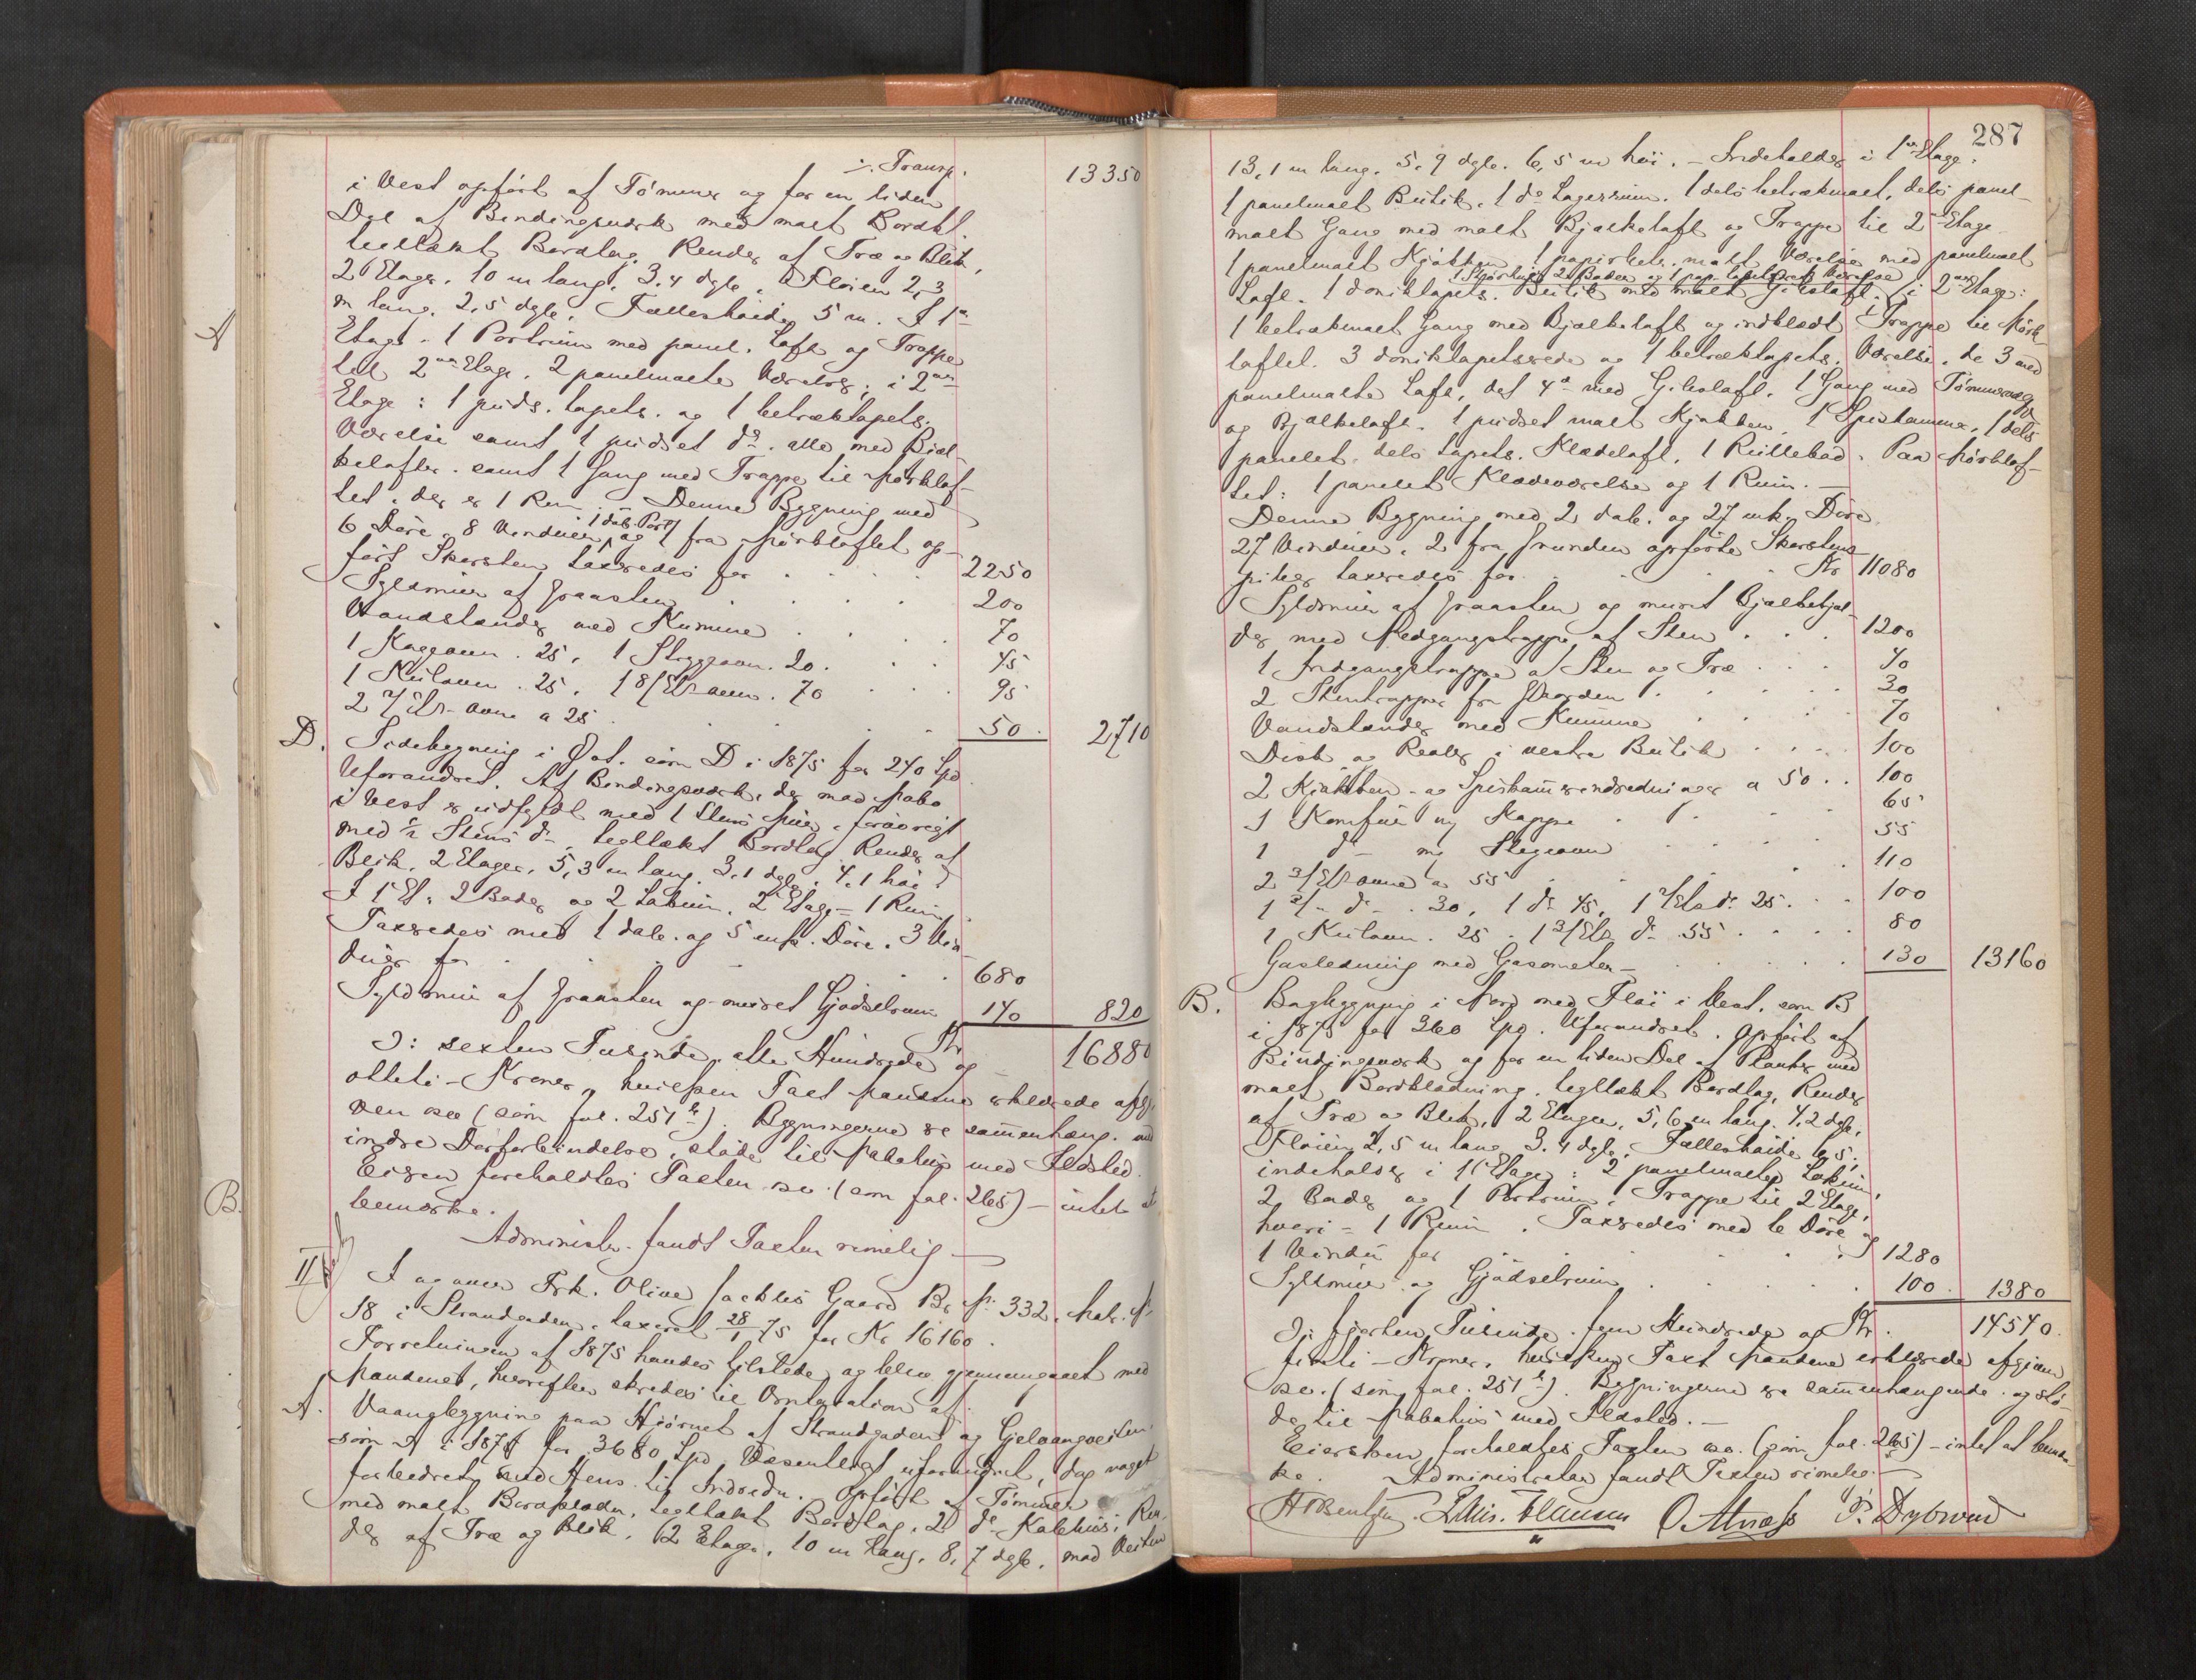 ÷ Transp. 13350
i Vest opført af Tømmer og for en liden
Del af Bindingsverk med malt Bordkl.
tegltækt Bordtag, Render af Træ og Blik,
2 Etager. 10 m lang, 3.4 dyb. Fløien 2,3
m lang, 2,5 dyb. Fælleshøide 5 m. I 1ste
Etage: 1 Portrum med panel. Loft og Trappe
til 2den Etage. 2 panelmalte Værelser; i 2den
Etage: 1 puds. tapets. og 1 betræktapets.
Værelse samt 1 pudset do. alle med Bjæl-
kelofter. samt 1 Gang med Trappe til Mørklof-
tet, der er 1 Rum. Denne Bygning med
6 Døre. 8 Vinduer, 1 dob. Port og 1 fra Mørkloftet op-
ført Skorsten taxeredes for . . . . 2250
Syldmur af Graasten . . . . 200
Vandstænder med Kumme . . . . 70
1 Kogeovn. 25, 1 Strygeovn. 20. . . 45
1 Kulovn. 25, 1 8/Etr ovn. 70 . . . 95
2 2/Etr- ovne a 25 . . . 50. 2710
D. Sidebygning i Øst. som D i 1875 for 240 Spd
Uforandret. Af Bindingsværk, der mod Nabo
i Vest er udfyldt med 1 Stens Mur, forøvrigt
med ½ Stens do. tegltækt Bordtag, Render af
Blik. 2 Etager, 5,3 m lang. 3,1 dyb, 4,1 høi:
I 1ste Et: 2 Boder og 2 Lokum. 2den Etage = 1 Rum.
Taxeredes med 1 dob. og 5 enk. Døre. 3 Vin-
duer for . . . . 680
Syldmur af Graasten og muret Gjødselrum 140 820
Kr. 16880
ɔ: sexten Tusinde, otte Hundrede og
otteti - Kroner, hvilken Taxt Mændene erklærede afgi-
ven osv (som fol. 251 b). Bygningerne er sammenhæng. ved
indre Dørforbindelse, støde til Nabohus med Ildsted.
Eieren foreholdtes Taxten osv. (som fol. 265) - intet at
bemærke.
Administr. fandt Taxten rimelig. -
II I og over Frk. Oline Gaard Br. No 332, Matr. No
18 i Strandgaden, taxeret 28/1 75 for Kr 16160.
Forretningen af 1875 havdes tilstede, og blev gjennemgaaet med
Mændene, hvorefter skredes til Omtaxation af:
A. Vaangbygning paa Hjørnet af Strandgaden og Gjelvangveiten
som A i 1875 for 3680 Spd. Væsentligt uforandret, dog noget
forbedret med Hens. til Indredn. Opført af Tømmer
med malt Bordklædn. tegltækt Bordtag, 2 do Kalkhus, Ren-
der af Træ og Blik. 2 Etager, 10 m lang, 8,7 dyb. mod Veiten
287
13,1 m lang. 5.9 dyb. 6,5 m høi. - Indeholder i 1ste Etage:
1 panelmalt Butik. 1 do Lagerrum. 1 dels betrækmalt, dels panel-
malt Gang med malt Bjælkeloft og Trappe til 2den Etage.
1 panelmalt Kjøkken, 1 papirbetr. malt Værelse med panelmalt
1 Skorsten, 2 Boder og 1 pap. tapetseret Værelse
Loft. 1 doniktapets. Butik med malt Gibsloft. i 2den Etage:
1 betrækmalt Gang med Bjælkeloft og indklædt Trappe til Mørk-
loftet. 3 doniktapetserede og 1 betræktapets. Værelse, de 3 med
panelmalte Loft, det 4de med Gibsloft. 1 Gang med Tømmervæg
og Bjælkeloft. 1 pudset malt Kjøkken, 1 Spiskammer, 1 dels
panelet dels tapets. Klædeloft. 1 Rullebod. Paa Mørklof-
tet: 1 panelet Klædeværelse og 1 Rum. -
Denne Bygning med 2 dob. og 27 enk. Døre
27 Vinduer. 2 fra Grunden opførte Skorstens-
piber taxeredes for . . . Kr 11080
Syldmur af Graasten og muret Bjælkekjæl-
der med Nedgangstrappe af Sten . . . 1200
1 Indgangstrappe af Sten og Træ . . . 40
2 Stentrapper fra Gaarden . . . 30
Vandstænder med Kumme . . . 70
Disk og Reoler i vestre Butik . . . 100
2 Kjøkken- og Spiskammerindredninger a 50 . . 100
1 Komfur og Kappe . . . 65
1 do og Stegeovn . . . 55
2 3/Etr ovne a 55 . . . 110
1 2/- do - 30, 1 do 45, 1 2/Et do 25. . . 100
1 Kulovn. 25 - 1 3/Etr do 55 . . . 80
Gasledning med Gasometer - . . . 130 13160
B. Bagbygning i Nord med Fløi i Vest. som B
i 1875 for 360 Spd. Uforandret. Opført af
Bindingsværk og for en liden Del af Planker med
malt Bordklædning, tegltækt Bordtag, Render
af Træ og Blik, 2 Etager, 5,6 m lang. 4,2 dyb,
Fløien 2,5 m lang 3.4 dyb. Fælleshøide 6,5;
indeholder i 1ste Etage: 2 panelmalte Lokum,
2 Boder og 1 Portrum. Trappe til 2 Etage,
hvori = 1 Rum. Taxeredes med 6 Døre og
1 Vindu for . . . 1280
Syldmur og Gjødselrum . . . 100. 1380
ɔ: fjorten Tusinde, fem Hundrede og Kr. 14540.
firti - Kroner, hvilken Taxt Mændene erklærede afgiven
osv. (som fol. 251 b). Bygningerne er sammenhængende og stø-
de til Nabohus med Ildsted. -
Eiersken foreholdtes Taxten osv. (som fol. 265) - intet at bemær-
ke. Administrator fandt Taxten rimelig. -
H Bentzen. Chr. Hansen O. Næss P. Dybwad
A
B.